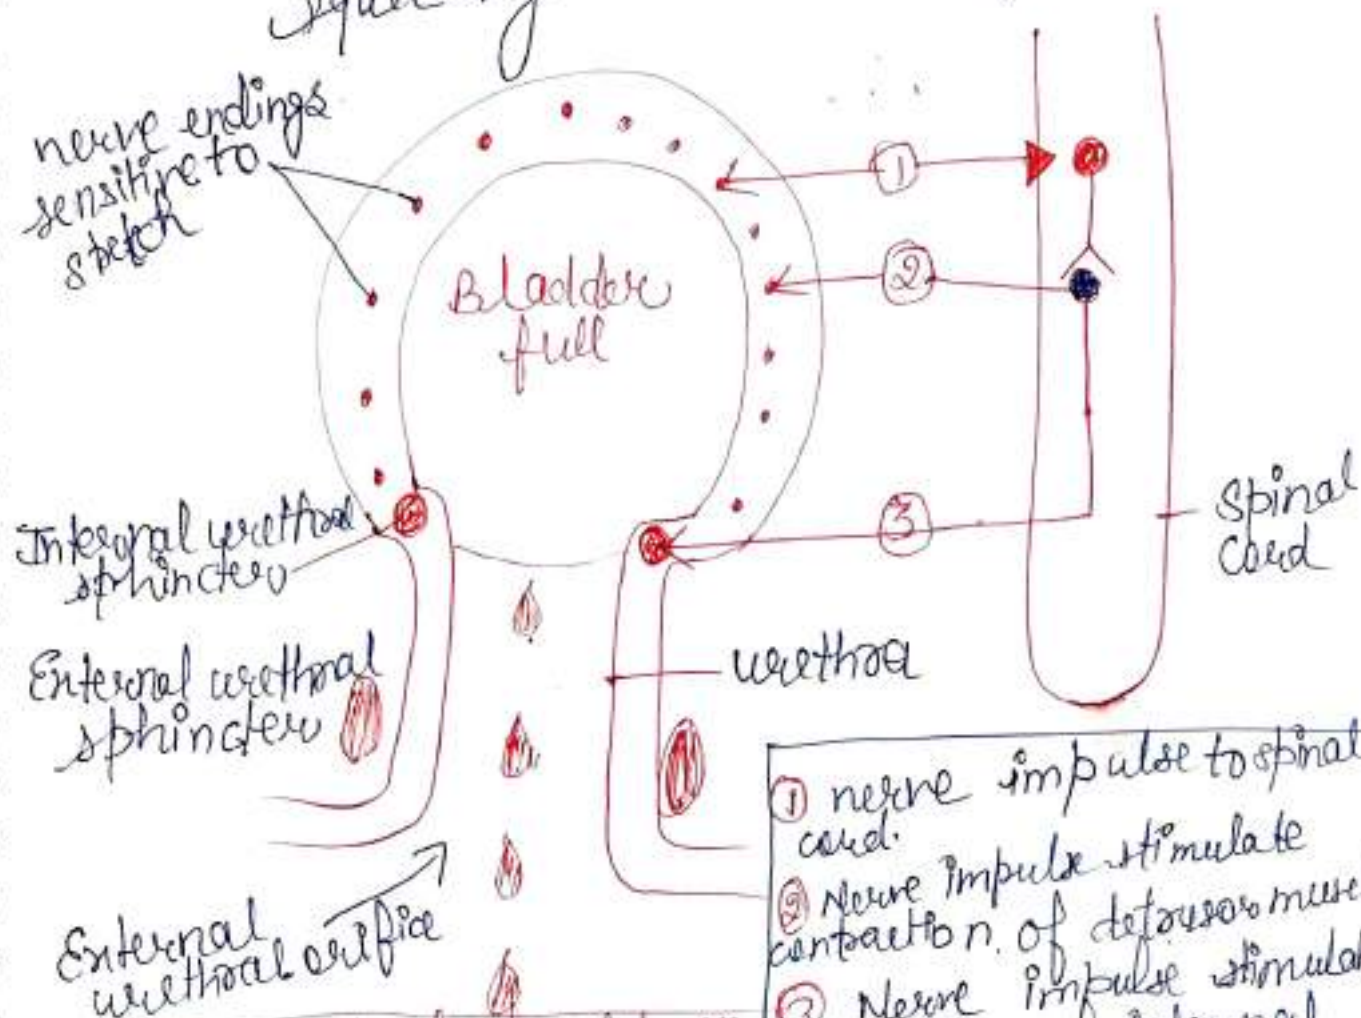 nerve endings
sensitive to
stretch
Bladder
full
1
2
3
Internal urethral
sphincter
External urethral
sphincter
urethra
Spinal
Cord
External
urethral orifice
① nerve impulse to spinal
cord.
② Nerve impulse stimulate
contraction of detrusor musc
③ Nerve impulse stimulat